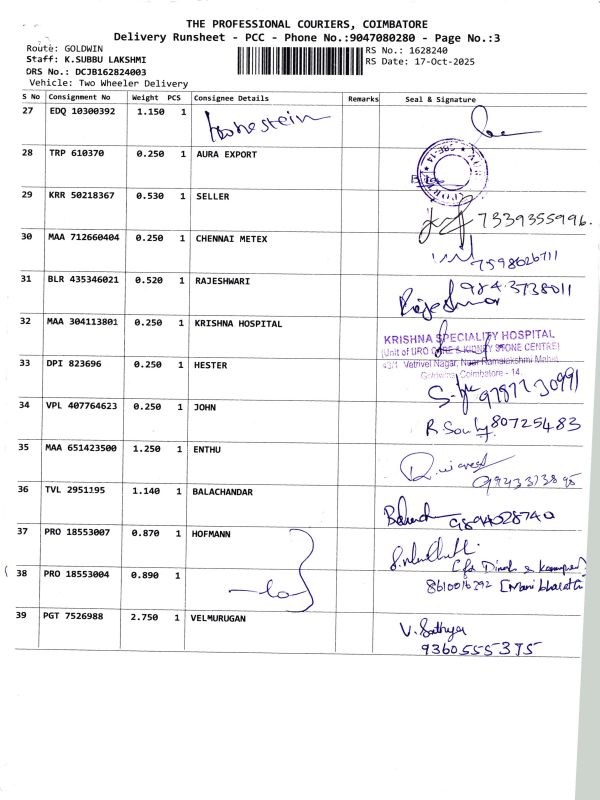 THE PROFESSIONAL COURIERS, COIMBATORE
Delivery Runsheet - PCC - Phone No.:9047080280 - Page No.:3
Route: GOLDWIN
RS No.: 1628240
Staff: K.SUBBU LAKSHMI
RS Date: 17-Oct-2025
DRS No.: DCJB162824003
Vehicle: Two Wheeler Delivery
S No Consignment No Weight PCS Consignee Details Remarks Seal & Signature
27 EDQ 10300392 1.150 1
28 TRP 610370 0.250 1 AURA EXPORT
29 KRR 50218367 0.530 1 SELLER
7339355996.
30 MAA 712660404 0.250 1 CHENNAI METEX
7598026711
31 BLR 435346021 0.520 1 RAJESHWARI
9843738011
32 MAA 304113801 0.250 1 KRISHNA HOSPITAL
KRISHNA SPECIALITY HOSPITAL
(Unit of URO CARE & KIDNEY STONE CENTRE)
43/1 Vetrivel Nagar, Near Ramalakshmi Mahal
Goldwins, Coimbatore - 14.
33 DPI 823696 0.250 1 HESTER
9787730991
34 VPL 407764623 0.250 1 JOHN
80725483
35 MAA 651423500 1.250 1 ENTHU
36 TVL 2951195 1.140 1 BALACHANDAR
9894028740
37 PRO 18553007 0.870 1 HOFMANN
38 PRO 18553004 0.890 1
8610016292 [Manibharathi
39 PGT 7526988 2.750 1 VELMURUGAN
V. Sathya
9360555375